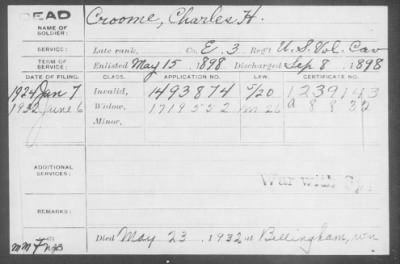 DEAD
NAME OF SOLDIER: Croome, Charles H.
SERVICE: Late rank, Co. E. 3 Reg't U.S. Vol. Cav
TERM OF SERVICE: Enlisted May 15, 1898 Discharged Sep 8, 1898
DATE OF FILING. CLASS. APPLICATION NO. LAW. CERTIFICATE NO.
1924 Jan 7 Invalid, 1493874 5/20 1239143
1932 June 6 Widow, 1719552 m-26 a 8 8 32
Minor,
ADDITIONAL SERVICES:
War with Spa
REMARKS:
Died May 23, 1932 at Bellingham, Wn